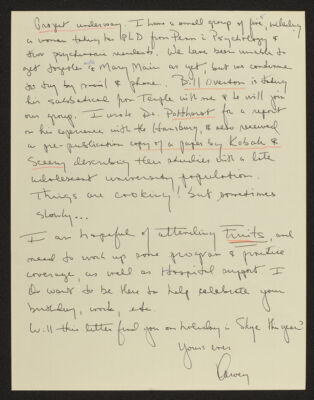 Project underway. I have a small group of five, including
a woman taking her Ph.D from Penn in Psychology &
two psychiatric residents. We have been unable to
get together with Mary Main as yet, but we continue
to try by mail & phone. Bill Overton is taking
his sabbatical from Temple with me & he will join
our group. I wrote Dr. for a report
on his experience with the Hamburg, & also received
a pre-publication copy of a paper by Kobak &
Sceery describing their studies with a late
adolescent university population.
Things are cooking! but sometimes
slowly...
I am hopeful of attending and
need to work up some program & practice
coverage, as well as Hospital support. I
do want to be there to help celebrate your
birthday, work, etc.
Will this letter find you on holiday in Skye this year?
Yours ever
Harvey